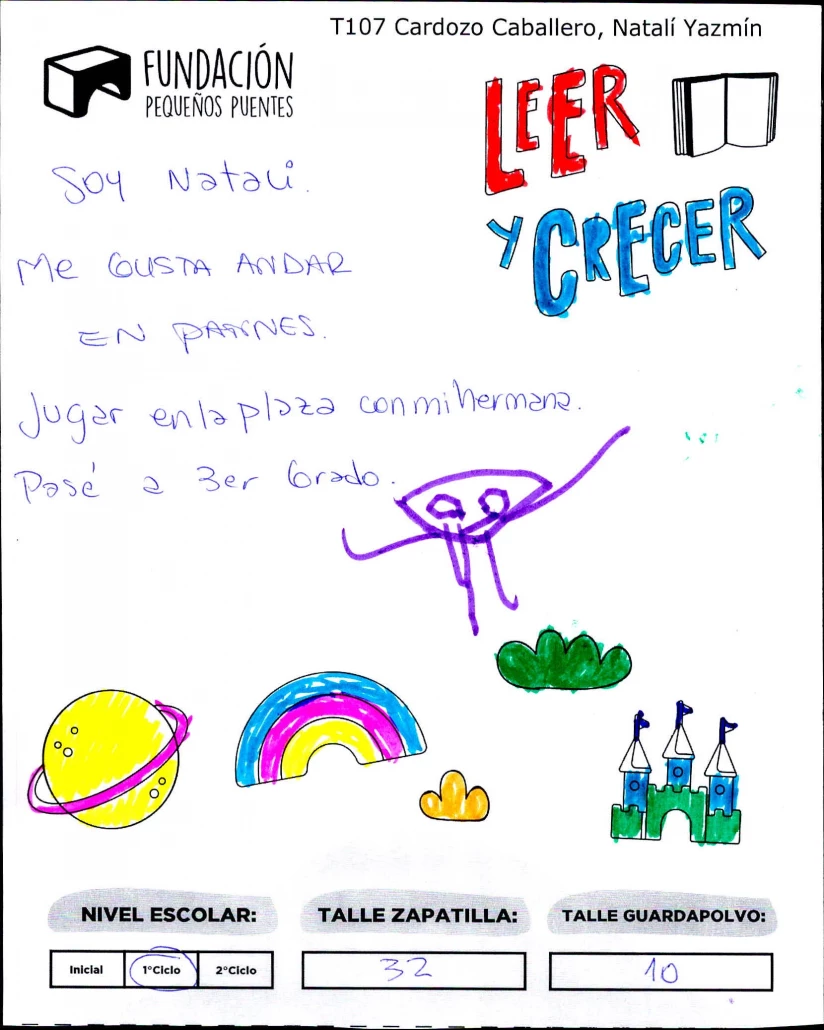 T107 Cardozo Caballero, Natalí Yazmín
FUNDACIÓN
PEQUEÑOS PUENTES
LEER
Y CRECER
Soy Natali.
Me GUSTA ANDAR
EN PATINES.
Jugar en la plaza con mi hermana.
Pasé a 3er Grado.
NIVEL ESCOLAR:
TALLE ZAPATILLA:
TALLE GUARDAPOLVO:
Inicial 1°Ciclo 2°Ciclo
32
10